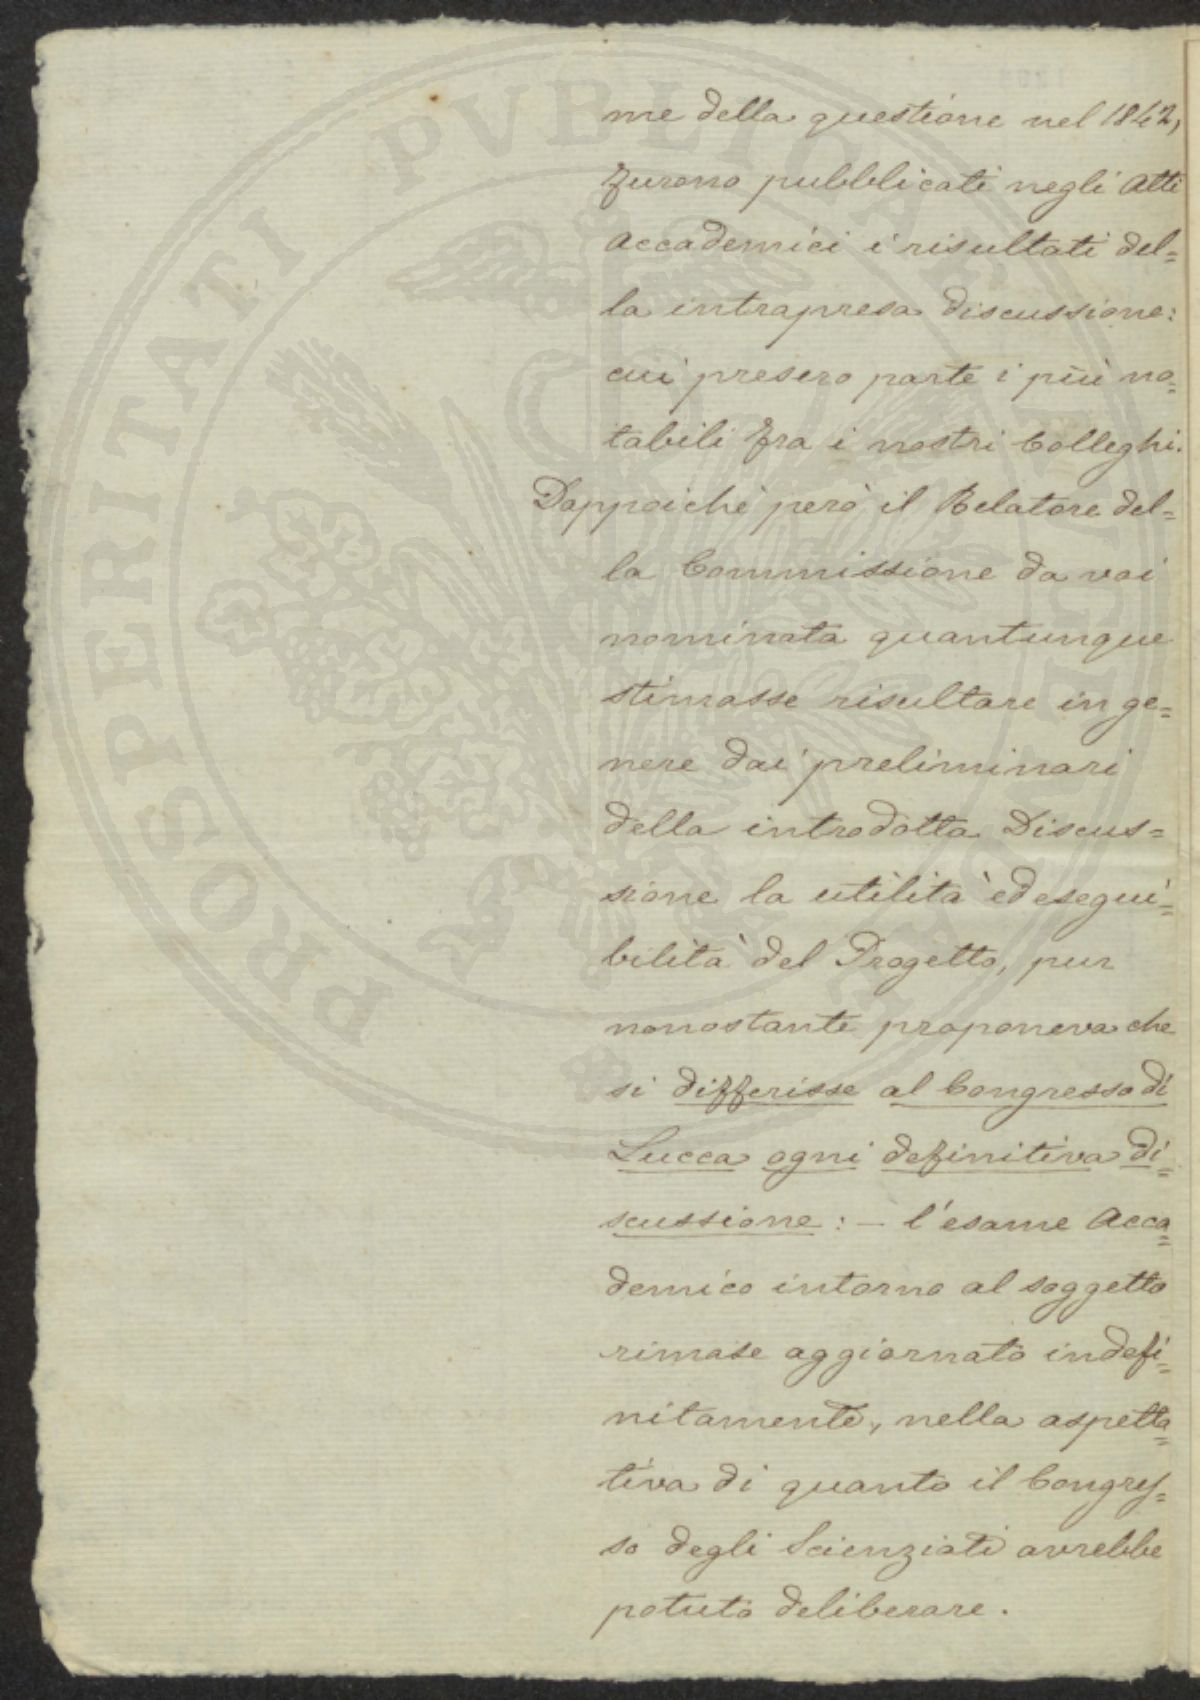 me della questione nel 1842,
furono pubblicati negli Atti
Accademici i risultati del=
la intrapresa discussione:
cui presero parte i più no=
tabili fra i nostri Colleghi.
Dappoichè però il Relatore del=
la Commissione da voi
nominata quantunque
stimasse risultare in ge=
nere dai preliminari
della introdotta Discus=
sione la utilità ed esegui=
bilità del Progetto, pur
nonostante proponeva che
si differisse al Congresso di
Lucca ogni definitiva di=
scussione: – l'esame Acca=
demico intorno al soggetto
rimase aggiornato indefi=
nitamente, nella aspetta=
tiva di quanto il Congres=
so degli Scienziati avrebbe
potuto deliberare.
PROSPERITATI PVBLICAE AVGENDAE